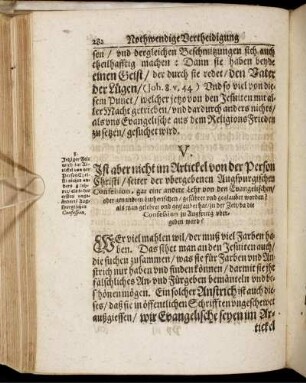 282 Nothwendige Vertheidigung
sen / vnd dergleichen Beschmitzungen sich auch
theilhafftig machen : Dann sie haben beyde
einen Geist / der durch sie redet / den Vater
der Lügen / (Joh. 8. v. 44.) Vnd so viel von die-
sem Punct / welcher jetzo von den Jesuiten mit al-
ler Macht getrieben / vnd dardurch anders nichts /
als vns Evangelische aus dem Religions Frieden
zu setzen / gesucht wird.
V.
Ist aber nicht im Artickel von der Person
Christi / seiter der vbergebenen Augspurgischen
Confession / gar eine andere Lehr von den Evangelischen /
oder genandten Lutherischen / geführet vnd geglaubet worden /
als man gelehret vnd geglaubet hat / in der Zeit / da die
Confession zu Augspurg vber-
geben ward?
WEr viel mahlen wil / der muß viel Farben ha-
ben. Das sihet man an den Jesuiten auch /
die suchen zusammen / was sie für Farben vnd An-
strich nur haben vnd finden können / damit sie jhr
fälschliches An- vnd Fürgeben bemänteln vnd be-
schönen mögen. Ein solcher Anstrich ist auch die-
ses / daß sie in öffentlichen Schrifften vngeschewet
außgiessen / wir Evangelische seyen im Ar-
tickel